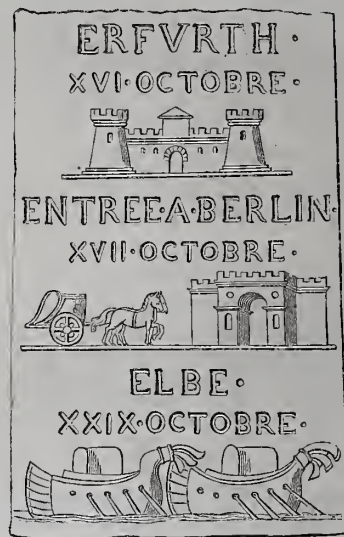 ERFVRTH·
XVI·OCTOBRE·
ENTREE·A·BERLIN·
XVII·OCTOBRE·
ELBE·
XXIX·OCTOBRE·